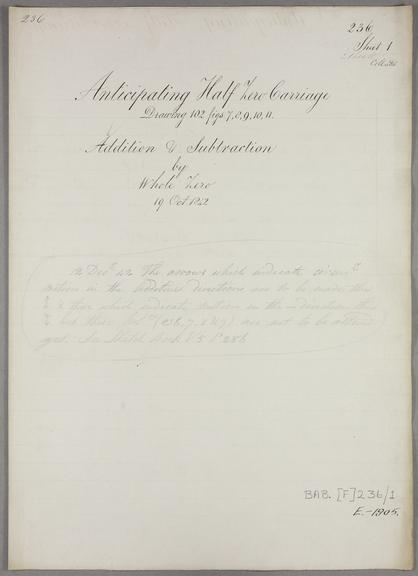 236
236
Sheet 1
Anticipating Half Zero Carriage
Drawing 102 figs 7, 8, 9, 10, 11.
Addition & Subtraction
by
Whole Zero
19 Oct 1842
12 Decr 42 The arrows which indicate circular
motion in the Additive directions are to be made thus
& those which indicate motion in the direction thus
but these (236, 7, 8 & 9) are not to be altered
yet. See Sketch Book V 5 P 286
BAB. [F]236/1
E.-1905.